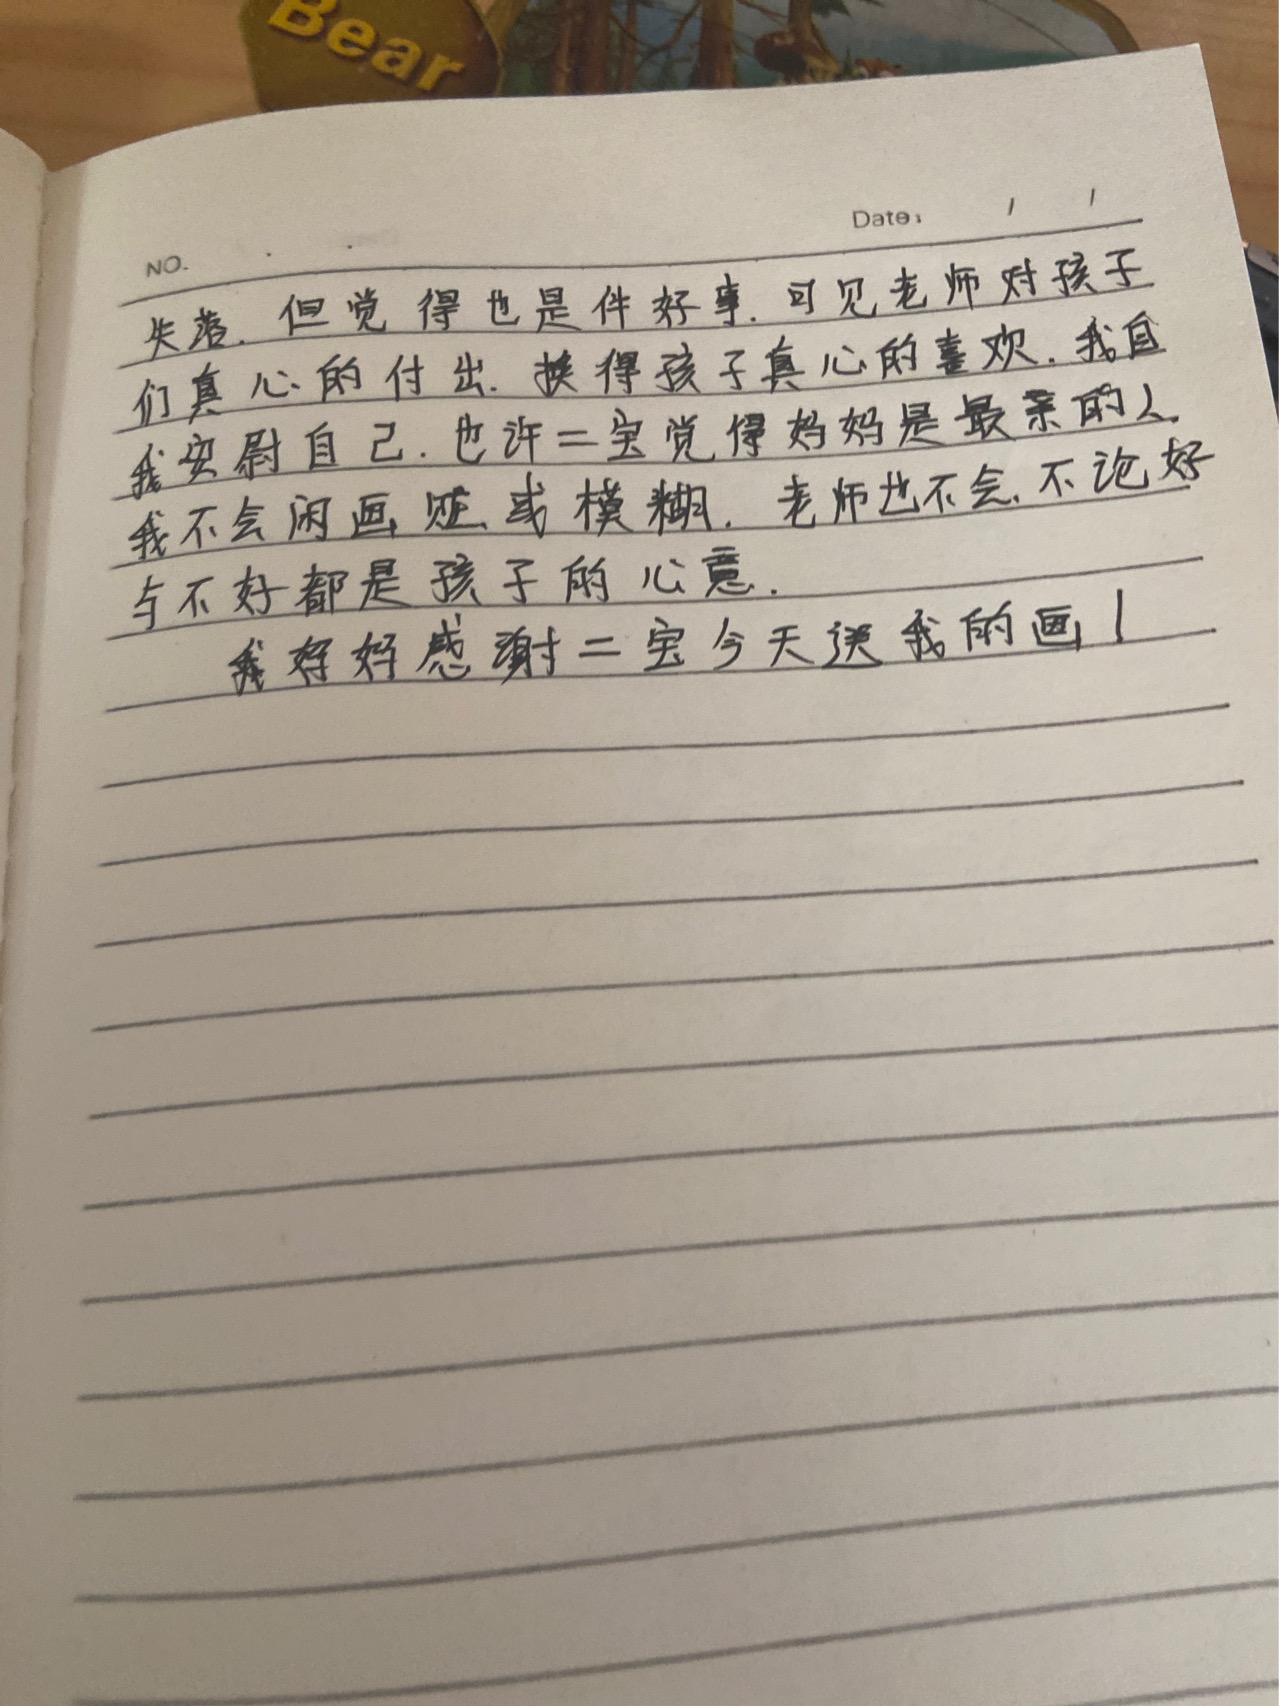 Bear
NO.
Date:    /    /
失落.但觉得也是件好事.可见老师对孩子
们真心的付出.换得孩子真心的喜欢.我自
我安尉自己.也许二宝觉得妈妈是最亲的人.
我不会闲画 或模糊.老师也不会.不论好
与不好都是孩子的心意.
我好好感谢二宝今天送我的画!